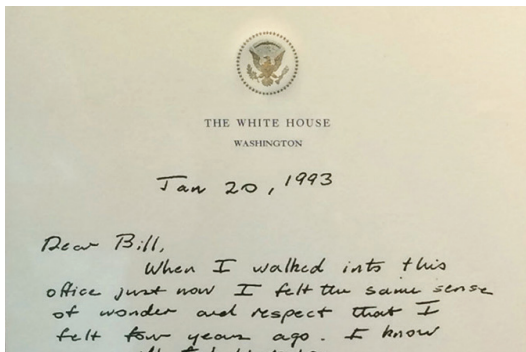 THE WHITE HOUSE
WASHINGTON
Jan 20, 1993
Dear Bill,
When I walked into this
office just now I felt the same sense
of wonder and respect that I
felt four years ago. I know